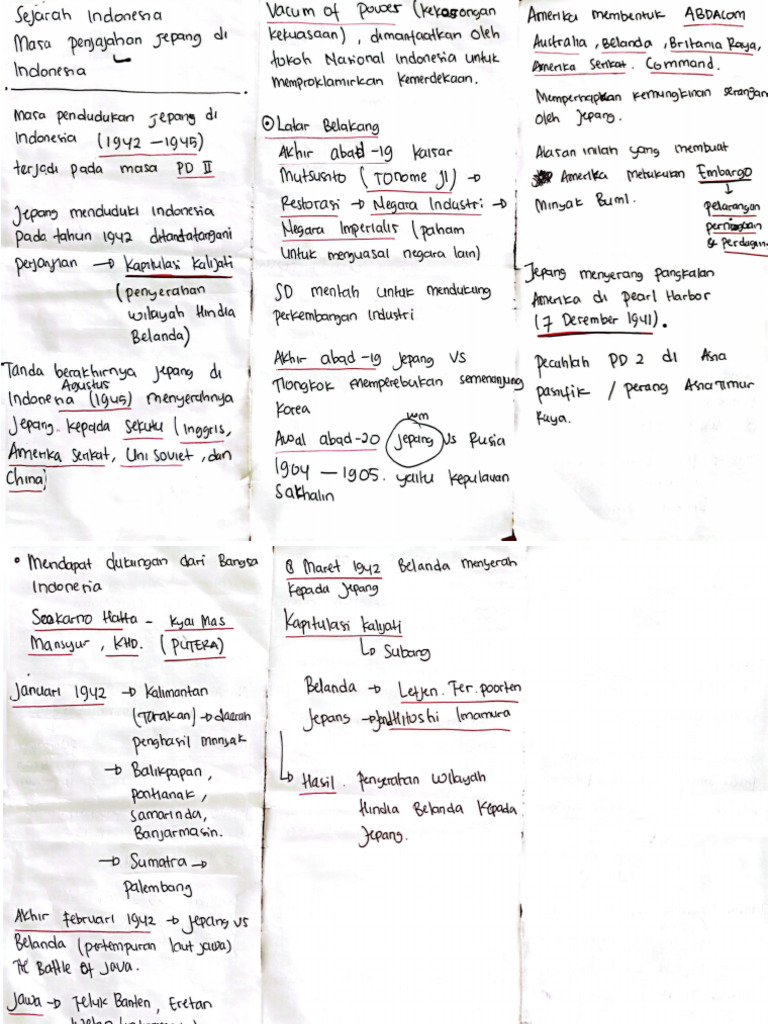 Sejarah Indonesia
Masa penjajahan jepang di
Indonesia
Masa pendudukan jepang di
Indonesia (1942 – 1945)
terjadi pada masa PD II
Jepang menduduki Indonesia
pada tahun 1942 ditandatangani
perjanjian → Kapitulasi Kalijati
(penyerahan
wilayah Hindia
Belanda)
Tanda berakhirnya jepang di
Agustus
Indonesia (1945) menyerahnya
Jepang kepada sekutu (Inggris,
Amerika serikat, Uni Soviet, dan
China)
Vacum of power (kekosongan
kekuasaan), dimanfaatkan oleh
tokoh Nasional Indonesia untuk
memproklamirkan kemerdekaan.
Latar Belakang
Akhir abad -19 kaisar
Mutsusito (Tonome JI) →
Restorasi → Negara Industri →
Negara Imperialis (paham
untuk menguasai negara lain)
SD mentah untuk mendukung
perkembangan industri
Akhir abad -19 Jepang VS
Tiongkok memperebutkan semenanjung
Korea
win
Awal abad -20 jepang vs Rusia
1904 – 1905. yaitu kepulauan
Sakhalin
Amerika membentuk ABDACOM
Australia, Belanda, Britania Raya,
Amerika Serikat. Command.
Mempersiapkan kemungkinan serangan
oleh Jepang.
Alasan inilah yang membuat
Amerika melakukan Embargo
Minyak Bumi.
pelarangan
perniagaan
& perdagan
Jepang menyerang pangkalan
Amerika di pearl Harbor
(7 Desember 1941).
Pecahlah PD 2 di Asia
pasifik / perang Asia Timur
Raya.
• Mendapat dukungan dari Bangsa
Indonesia
Soekarno Hatta - Kyai Mas
Mansyur, KHD. (PUTERA)
Januari 1942 → Kalimantan
(Tarakan) → daerah
penghasil minyak
→ Balikpapan,
pontianak,
samarinda,
Banjarmasin.
→ Sumatra →
palembang
Akhir februari 1942 → Jepang vs
Belanda (pertempuran laut jawa)
The Battle of Java.
Jawa → Teluk Banten, Eretan
8 Maret 1942 Belanda menyerah
kepada Jepang
Kapitulasi Kalijati
↳ Subang
Belanda → Letjen. Ter. poorten
Jepans → Hitoshi Imamura
↳ Hasil. penyerahan wilayah
Hindia Belanda kepada
Jepang.